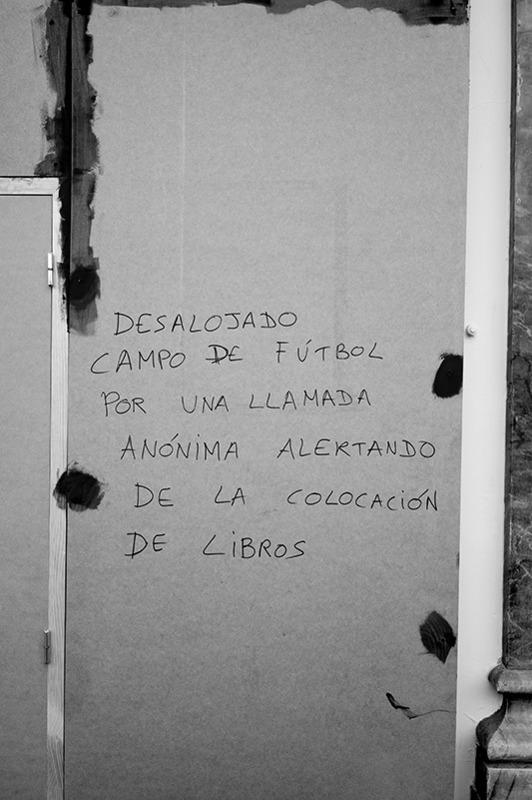 DESALOJADO
CAMPO DE FÚTBOL
POR UNA LLAMADA
ANÓNIMA ALERTANDO
DE LA COLOCACIÓN
DE LIBROS